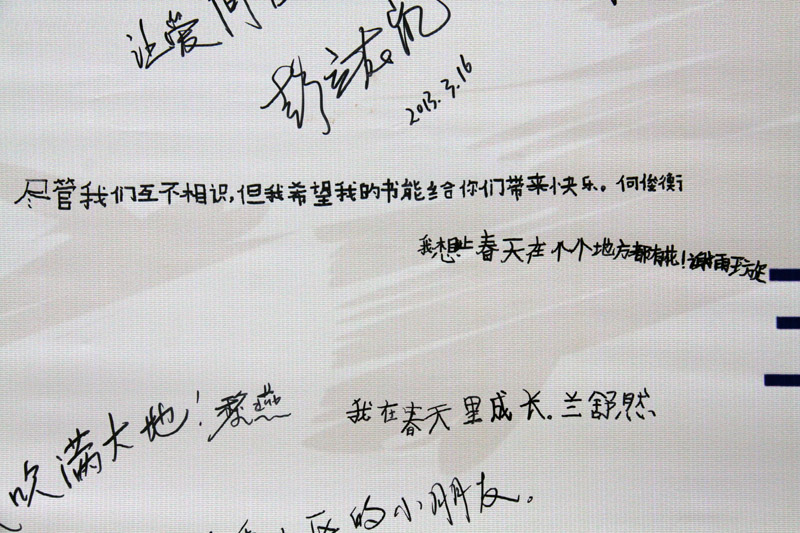 让爱
2013.3.16
尽管我们互不相识,但我希望我的书能给你们带来快乐。何俊衡
我想让春天在个个地方都有花!谢雨
吹满大地!黎燕
我在春天里成长.兰舒然
区的小朋友.